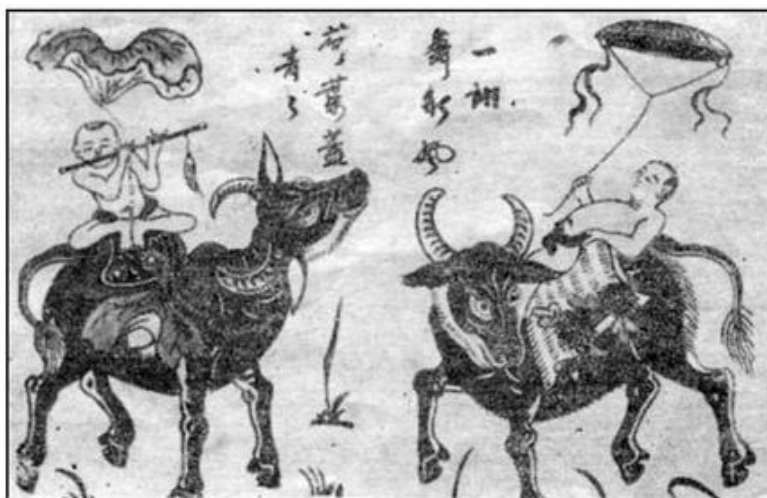 一
舞秋風
荷葉蓋
青々